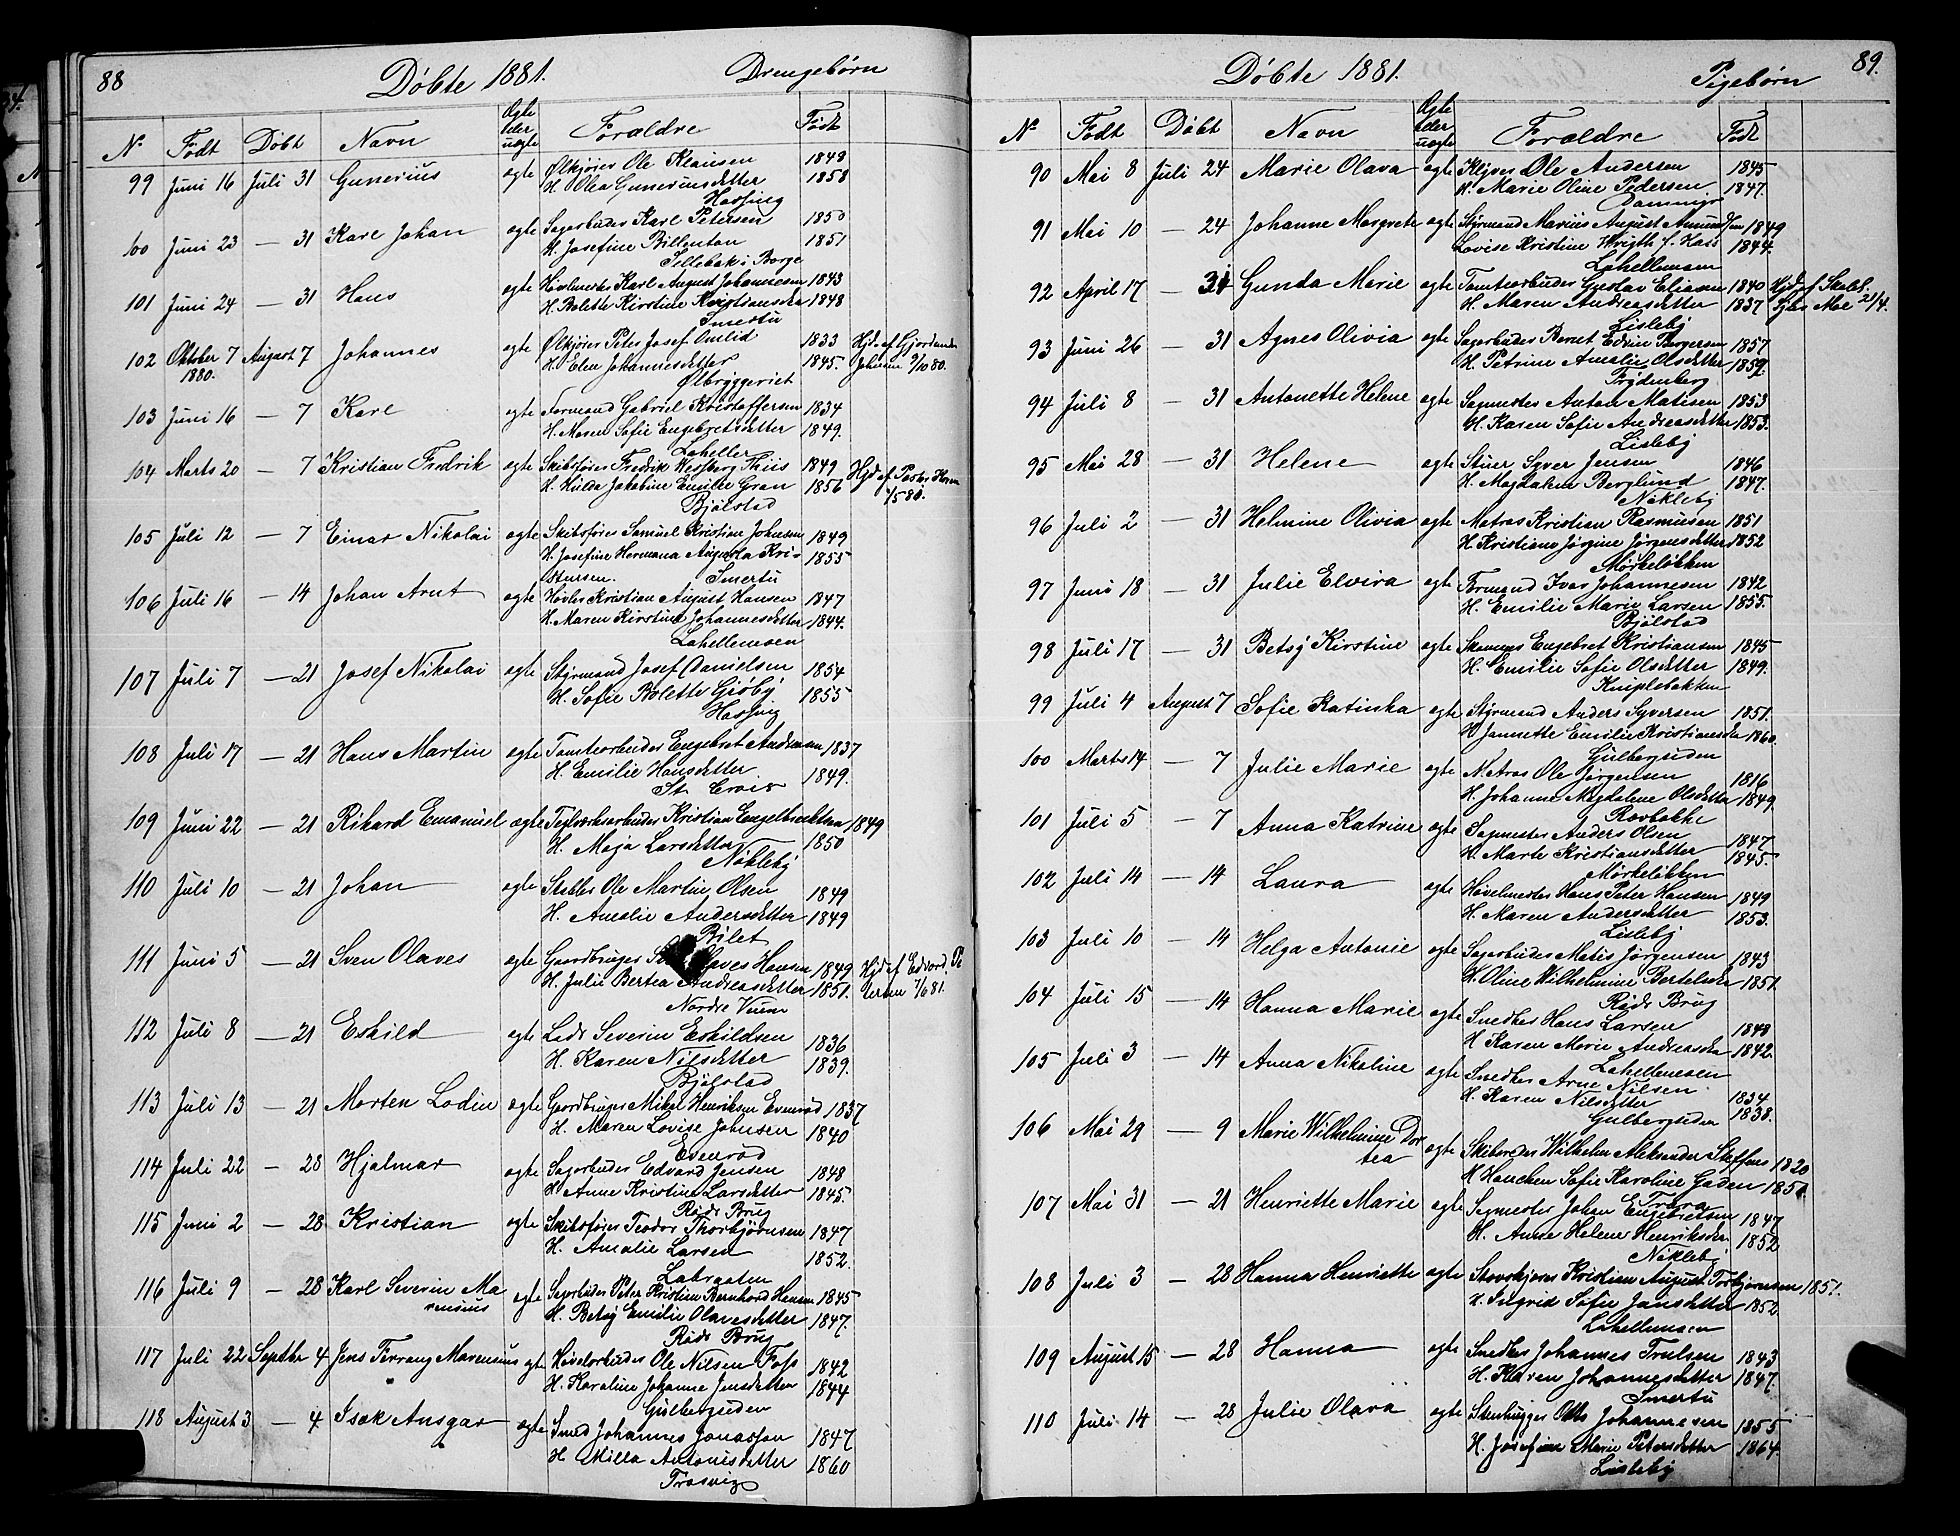 88
Døbte 1881.
Drengebørn
N.
Født
Døbt
Navn
Ægte eller uægte
Forældre
Født
99 Juni 16 Juli 31 Gunerius ægte Ølkjører Ole Klausen 1848
H. Olea Guneriusdatter 1858
Hassing
100 Juni 23 — 31 Karl Johan ægte Sagarbeider Karl Petersen 1850
H. Josefine Billentan 1851
Sellebak i Borge
101 Juni 24 — 31 Hans ægte Høvlmester Karl August Johannesen 1843
H. Bolette Kirstine Kristiansda 1848
Smertu
102 Oktober 7 August 7 Johannes ægte Ølkjører Peter Josef 1833 Hjd. af Gjordemo
1880. H. Elen Johannesdatter 1845. Johnsen 9/10 80.
Ølbryggeriet
103 Juni 16 — 7 Karl ægte Formand Gabriel Kristoffersen 1834
H. Maren Sofie Engebretsdatter 1849.
Laheller
104 Marts 20 — 7 Kristian Fredrik ægte Skibsfører Fredrik Wessberg Thiis 1849 Hjd af Pastor Horn
H. Hulda Jakobine Emilie Gran 1856 1/5 81.
Bjølstad
105 Juli 12 — 7 Einar Nikolai ægte Skibsfører Samuel Kristian Johnsen 1849
H. Josefine Hermana Augusta Kri- 1855
stensen. Smertu
106 Juli 16 — 14 Johan Arnt ægte Høvler Kristian August Hansen 1847
H. Maren Kirstine Johannesdatter 1844.
Lahellemoen
107 Juli 7 — 21 Josef Nikolai ægte Styrmand Josef Danielsen 1854
H. Sofie Bolette Grøby 1855
Hassing
108 Juli 17 — 21 Hans Martin ægte Tomtearbeider Engebret Andersen 1837
H. Emilie Hansdatter 1849.
St. Croix
109 Juni 22 — 21 Rikard Emanuel ægte Teglværksarbeider Kristian Engelbrektsen 1849
H. Maja Larsdatter 1850
Nøkleby
110 Juli 10 — 21 Johan ægte Stabler Ole Martin Olsen 1849
H. Amalie Andersdatter 1849
Rølet
111 Juni 5 — 21 Sven Olaves ægte Gaardbruger Olaves Hansen 1849 Hjd af Edvard Pe
H. Julie Bertea Andreasdatter 1851. tersen 7/6 81.
Nordre Veum
112 Juli 8 — 21 Eskild ægte Lods Severin Eskildsen 1836
H. Karen Nilsdatter 1839.
Bjølstad
113 Juli 13 — 21 Morten Lodin ægte Gaardbruger Mikal Henriksen Evenrød 1837
H. Maren Lovise Johnsen 1840
Evenrød
114 Juli 22 — 28 Hjalmar ægte Sagarbeider Edvard Jensen 1848
H. Anne Kristine Larsdatter 1845.
Røds Brug
115 Juni 2 — 28 Kristian ægte Skibsfører Teodor Thorbjørnsen 1847
H. Amalie Larsen 1852.
Labrgaten
116 Juli 9 — 28 Karl Severin Ma ægte Sagarbeider Peter Kristian Bernhard Hansen 1845
rensius H. Betsy Emilie Olavesdatter 1847.
Røds Brug
117 Juli 22 Septbr 4 Jens Terrang Marensius ægte Høvelarbeider Ole Nilsen Foss 1842
H. Karoline Johanne Jensdatter 1844
Gulbergsiden
118 August 3 — 4 Isak Ansgar ægte Smed Johannes Jonassen 1847
H. Milla Antonisdatter 1860
Trosvig
89.
Døbte 1881.
Pigebørn
N.
Født
Døbt
Navn
Ægte eller uægte
Forældre
Født
90 Mai 8 Juli 24 Marie Olava ægte Kløver Ole Andersen 1845
H. Marie Oline Pedersen 1847.
Dammyr
91 Mai 10 — 24 Johanne Margrete ægte Styrmand Marius August Amundsen 1849
Lovise Kristine Wrigth f. Hass 1844.
Lahellemoen
92 April 17 — 31 Gunda Marie ægte Tomtearbeider Gustav Eliasen 1840 Hjd. af Skolel.
H. Maren Andreasdatter 1837 Moe 21/4.
Lisleby
93 Juni 26 — 31 Agnes Olivia ægte Sagarbeider Bernt Edvin Borgersen 1857
H. Petrine Amalie Olsdatter 1859.
Frydenberg
94 Juli 8 — 31 Antonette Helene ægte Sagmester Anton Matisen 1853
H. Karen Sofie Andreasdatter 1853.
Lisleby
95 Mai 28 — 31 Helene ægte Stuer Syver Jensen 1846
H. Magdalena Berglund 1847.
Nøkleby
96 Juli 2 — 31 Helmine Olivia ægte Matros Kristian Rasmusen 1851
H. Kristiane Jørgine Jørgensdatter 1852
Mørkeløkken
97 Juni 18 — 31 Julie Elvira ægte Formand Ivar Johannesen 1842
H. Emilie Marie Larsen 1855.
Bjølstad
98 Juli 17 — 31 Betsy Kirstine ægte Skomager Engebret Kristiansen 1845
H. Emilie Sofie Olsdatter 1849.
Kniplebakken
99 Juli 4 August 7 Sofie Katinka ægte Styrmand Anders Syversen 1851.
H. Jannette Emilie Kristiansda 1860.
Gulbergsiden
100 Marts 14 — 7 Julie Marie ægte Matros Ole Jørgensen 1816
H. Johanne Magdalene Olsdatter 1849.
Ravbakke
101 Juli 5 — 7 Anna Katrine ægte Sagmester Anders Olsen 1847
H. Marte Kristiansdatter 1845.
Mørkeløkken
102 Juli 14 — 14 Laura ægte Høvelmester Hans Peter Hansen 1849
H. Maren Andersdatter 1853.
Lisleby
103 Juli 10 — 14 Helga Antonie ægte Sagarbeider Matis Jørgensen 1843
H. Oline Wilhelmine Bertelsda 1851.
Røds Brug
104 Juli 15 — 14 Hanna Marie ægte Snedker Hans Larsen 1848
H. Karen Marie Andreasda 1842.
Lahellemoen
105 Juli 3 — 14 Anna Nikoline ægte Snedker Arne Nilsen 1834
H. Karen Nilsdatter 1838.
Gulbergsiden
106 Mai 29 — 9 Marie Wilhelmine Dor ægte Skibsreder Wilhelm Aleksander Steffens 1820
tea H. Hanchen Sofie Karoline Gaden 1851.
Trara
107 Mai 31 — 21 Henriette Marie ægte Sagmester Johan Engebretsen 1847
H. Anne Helene Henriksda 1852
Nøkleby
108 Juli 3 — 28 Hanna Henriette ægte Stavskjærer Kristian August Torbjørnsen 1851.
H. Sigrid Sofie Jansdatter 1852.
Lahellemoen
109 August 15 — 28 Hanna ægte Snedker Johannes Trulsen 1843
H. Karen Johannesdatter 1847.
Smertu
110 Juli 14 — 28 Julie Olava ægte Stenhugger Otto Johannesen 1855
H. Josefine Marie Petersdatter 1864.
Lisleby